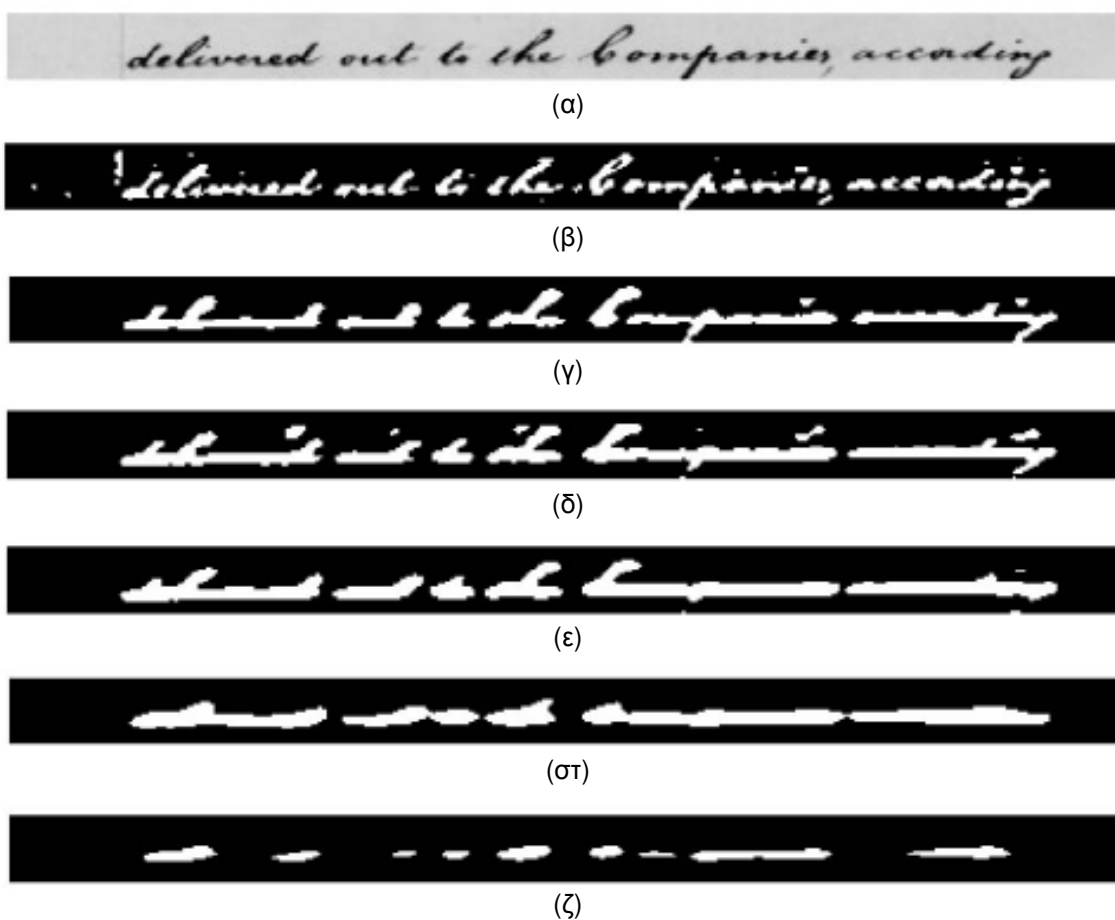 delivered out to the Companies, according
(α)
delivered out to the Companies, according
(β)
(γ)
(δ)
(ε)
(στ)
(ζ)